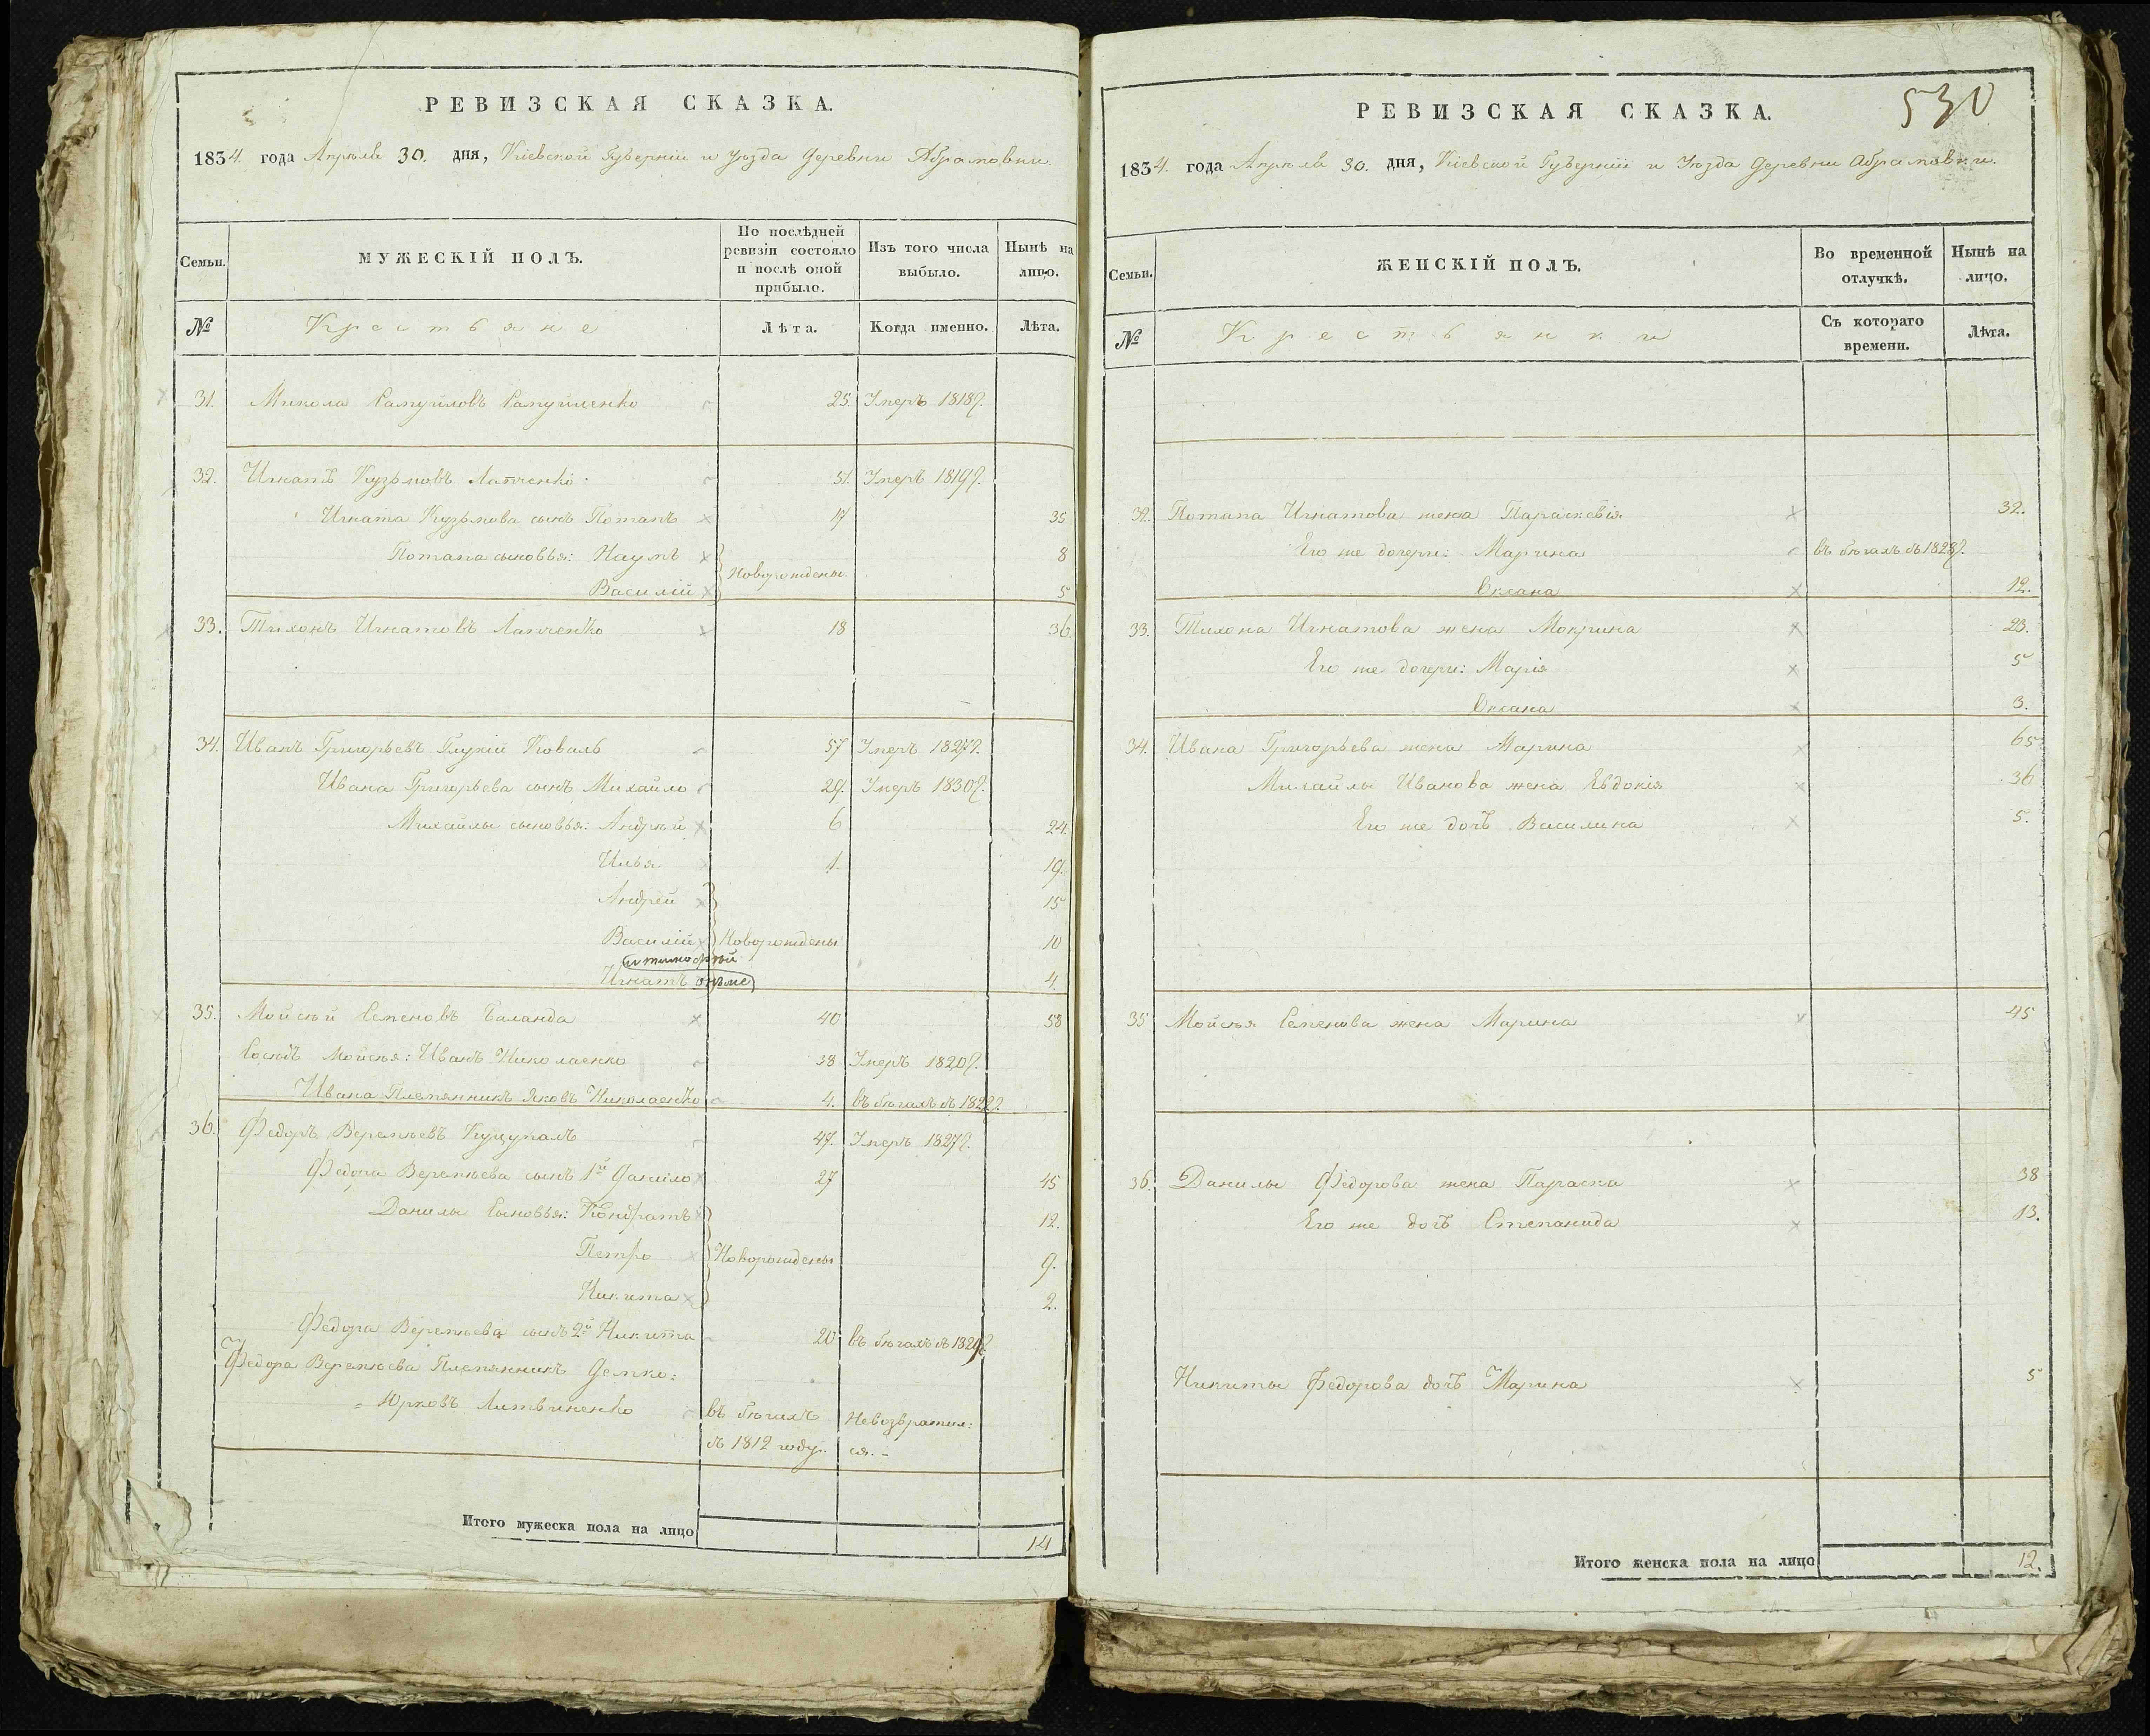 РЕВИЗСКАЯ СКАЗКА.
1834. года Апреля 30. дня, Кіевской Губерніи и Уезда Деревни Абрамовки.
Семьи.
МУЖЕСКІЙ ПОЛЪ.
По послѣдней ревизіи состояло и послѣ оной прибыло.
Изъ того числа выбыло.
Нынѣ на лицо.
№
Крестьяне
Лѣта.
Когда именно.
Лѣта.
31. Микола Самуйловъ Самуйленко 25. Умеръ 1818г.
32. Игнатъ Кузьмовъ Лапченко 51. Умеръ 1819г.
Игната Кузьмова сынъ Потапъ 17 35
Потапа сыновья: Наумъ 8
Новорождены.
Василій 5
33. Тихонъ Игнатовъ Лапченко 18 36.
34. Иванъ Григорьевъ Глухій Коваль 57 Умеръ 1827г.
Ивана Григорьева сынъ Михайло 29. Умеръ 1830г.
Михайлы сыновья: Андрѣй 6 24.
Илья 1. 19.
Андрей 15
Василій Новорождены 10
и тимофѣй
Игнатъ онже 4.
35. Мойсѣй Семеновъ Баланда 40 58
Сосѣдъ Мойсѣя: Иванъ Николаенко 38 Умеръ 1820г.
Ивана Племянникъ Яковъ Николаенко 4. въ бѣгахъ съ 1822г.
36. Федоръ Веремѣевъ 47. Умеръ 1827г.
Федора Веремѣева сынъ 1й Данило 27 45
Данилы Сыновья: Кондратъ 12.
Петро Новорождены 9.
Никита 2.
Федора Веремѣева сынъ 2й Никита 20 въ бѣгахъ съ 1829г.
Федора Веремѣева Племянникъ Демко:
Юрковъ Литвиненко въ бѣгахъ Невозвратил:
съ 1812 году. ся. -
Итого мужеска пола на лицо 14
530
РЕВИЗСКАЯ СКАЗКА.
1834. года Апреля 30. дня, Кіевской Губерніи и Уезда Деревни Абрамовки.
Семьи.
ЖЕНСКІЙ ПОЛЪ.
Во временной отлучкѣ.
Нынѣ на лицо.
№
Крестьянки
Съ котораго времени.
Лѣта.
32. Потапа Игнатова жена Параскевія 32.
Его же дочери: Марина въ бѣгахъ съ 1828г.
Оксана 12.
33. Тихона Игнатова жена Мокрина 23.
Его же дочери: Марія 5
Оксана 3.
34. Ивана Григорьева жена Марина 65
Михайлы Иванова жена Евдокія 36
Его же дочь Василина 5.
35 Мойсѣя Семенова жена Марина 45
36. Данилы Федорова жена Параска 38
Его же дочь Степанида 13.
Никиты Федорова дочь Марина 5
Итого женска пола на лицо 12.